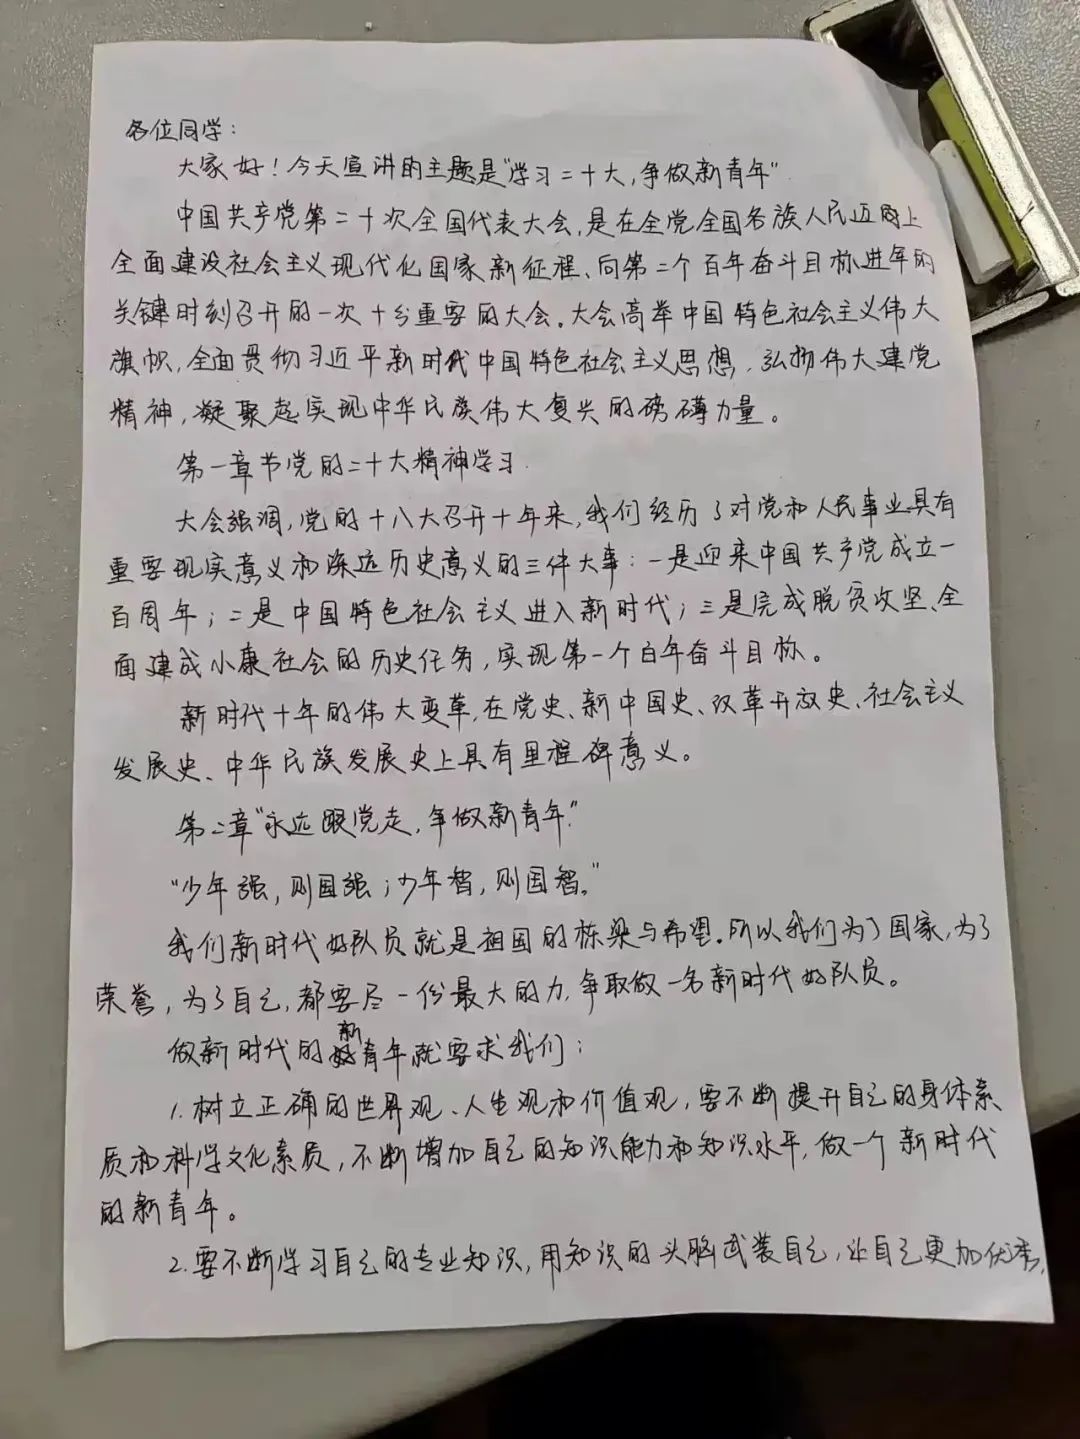 各位同学：
大家好！今天宣讲的主题是"学习二十大,争做新青年"
中国共产党第二十次全国代表大会,是在全党全国各族人民迈向上
全面建设社会主义现代化国家新征程、向第二个百年奋斗目标进军的
关键时刻召开的一次十分重要的大会。大会高举中国特色社会主义伟大
旗帜,全面贯彻习近平新时代中国特色社会主义思想,弘扬伟大建党
精神,凝聚起实现中华民族伟大复兴的磅礴力量。
第一章节党的二十大精神学习
大会强调,党的十八大召开十年来,我们经历了对党和人民事业具有
重要现实意义和深远历史意义的三件大事:一是迎来中国共产党成立一
百周年;二是中国特色社会主义进入新时代;三是完成脱贫攻坚、全
面建成小康社会的历史任务,实现第一个百年奋斗目标。
新时代十年的伟大变革,在党史、新中国史、改革开放史、社会主义
发展史、中华民族发展史上具有里程碑意义。
第二章"永远跟党走,争做新青年"
"少年强,则国强;少年智,则国智。"
我们新时代好队员就是祖国的栋梁与希望.所以我们为了国家,为了
荣誉,为了自己,都要尽一份最大的力,争取做一名新时代好队员。
做新时代的新青年就要求我们:
1.树立正确的世界观、人生观和价值观,要不断提升自己的身体素
质和科学文化素质,不断增加自己的知识能力和知识水平,做一个新时代
的新青年。
2.要不断学习自己的专业知识,用知识的头脑武装自己,让自己更加优秀,